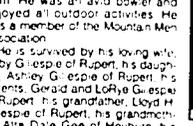 He was an avid bowler and
joyed all outdoor activities. He
s a member of the Mountain Men
sociation.
He is survived by his loving wife,
by Gillespie of Rupert, his daugh-
, Ashley Gillespie of Rupert, his
ents, Gerald and LoRye Gillespie
Rupert, his grandfather, Lloyd H.
espie of Rupert, his grandmoth-
Alta Dale Gee of